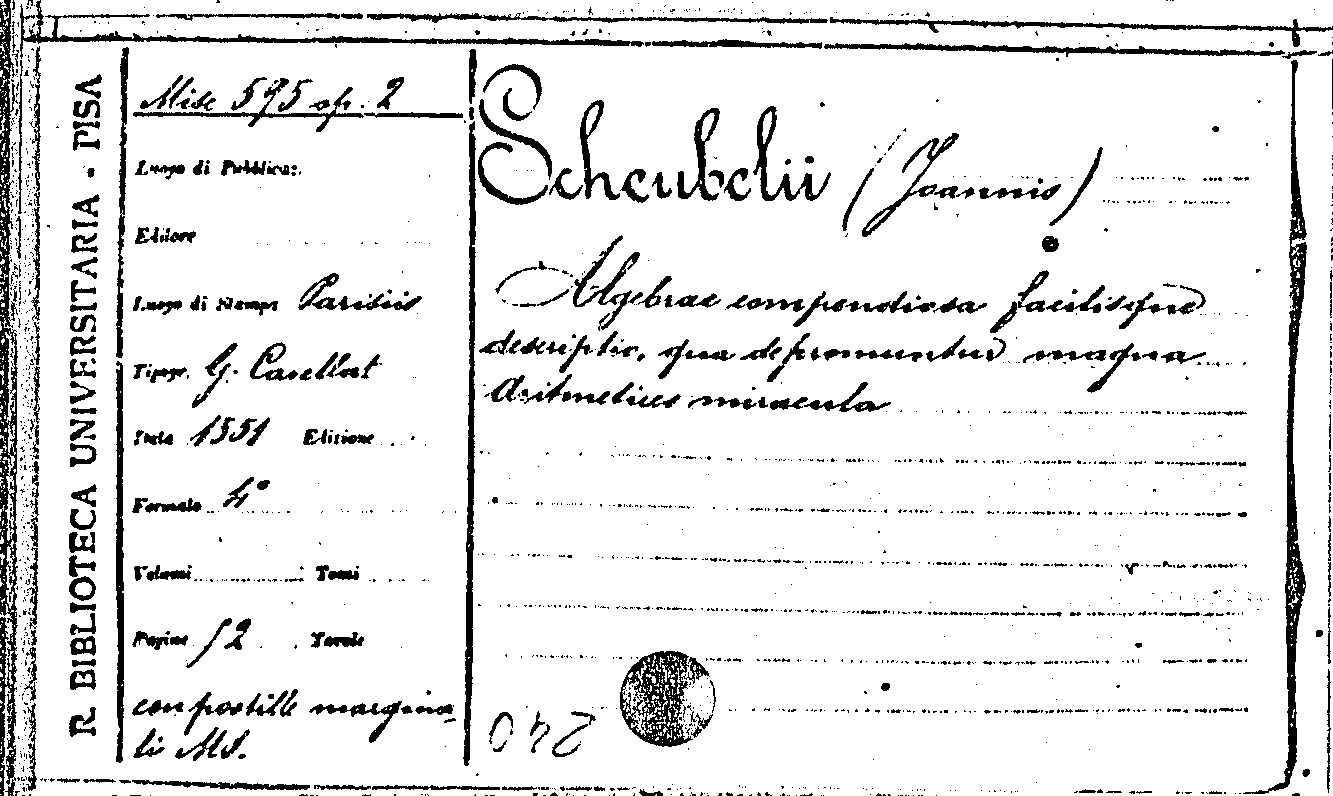 R. BIBLIOTECA UNIVERSITARIA - PISA
Misc 595 op. 2
Luogo di Pubblicaz.
Editore
Luogo di Stampa Parisiis
Tipogr. G. Cavellat
Data 1551 Edizione
Formato 4°
Volumi Tomi
Pagine 52 Tavole
con postille margina-
li MS.
Scheubelii (Joannis)
Algebrae compendiosa facilisque
descriptio, qua depromuntur magna
Aritmetices miracula
240